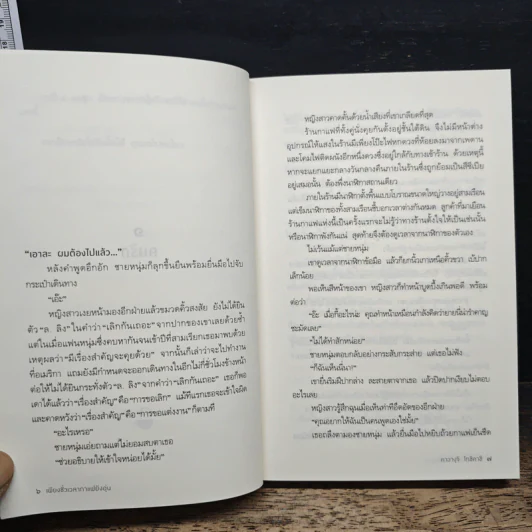 ๑
"เอาละ ผมต้องไปแล้ว..."
หลังคำพูดอีกอัก ชายหนุ่มก็ลุกขึ้นยืนพร้อมยื่นมือไปจับ
กระเป๋าเดินทาง
"เอ๊ะ"
หญิงสาวเงยหน้ามองอีกฝ่ายแล้วขมวดคิ้วสงสัย ยังไม่ได้ยิน
ตัว "ล. ลิง" ในคำว่า "เลิกกันเถอะ" จากปากของเขาเลยด้วยซ้ำ
แต่ในเมื่อแฟนหนุ่มซึ่งคบหากันเข้าปีที่สามเรียกเธอมาพบด้วย
เหตุผลว่า "มีเรื่องสำคัญจะคุยด้วย" จากนั้นก็เล่าว่าจะไปทำงาน
ที่อเมริกา แถมยังมีกำหนดจะออกเดินทางในอีกไม่กี่ชั่วโมงข้างหน้า
ต่อให้ไม่ได้ยินกระทั่งตัว "ล. ลิง" จากคำว่า "เลิกกันเถอะ" เธอก็พอ
เดาได้แล้วว่า "เรื่องสำคัญ" คือ "การขอเลิก" แม้ทีแรกเธอจะเข้าใจผิด
และคาดหวังว่า "เรื่องสำคัญ" คือ "การขอแต่งงาน" ก็ตามที
"อะไรเหรอ"
ชายหนุ่มเอ่ยถามแต่ไม่ยอมสบตาเธอ
"ช่วยอธิบายให้เข้าใจหน่อยได้มั้ย"
๖ เพียงชั่วเวลากาแฟยังอุ่น
หญิงสาวคาดคั้นด้วยน้ำเสียงที่เขาเกลียดที่สุด
ร้านกาแฟที่ทั้งคู่นั่งคุยกันตั้งอยู่ชั้นใต้ดิน จึงไม่มีหน้าต่าง
อุปกรณ์ให้แสงในร้านมีเพียงโป๊ะไฟหกดวงที่ห้อยลงมาจากเพดาน
และโคมไฟติดผนังอีกหนึ่งดวงซึ่งอยู่ใกล้กับทางเข้าร้าน ด้วยเหตุนี้
หากจะแยกแยะกลางวันกลางคืนภายในร้านซึ่งถูกย้อมเป็นสีซีเปีย
อยู่เสมอนั้น ต้องพึ่งนาฬิกาสถานเดียว
ภายในร้านมีนาฬิกาตั้งพื้นแบบโบราณขนาดใหญ่วางอยู่สามเรือน
แต่เข็มนาฬิกาของทั้งสามเรือนชี้บอกเวลาต่างกันหมด ลูกค้าที่มาเยือน
ร้านกาแฟแห่งนี้เป็นครั้งแรกจะไม่รู้ว่าทางร้านตั้งใจให้เป็นเช่นนั้น
หรือนาฬิกาพังกันแน่ สุดท้ายจึงต้องดูเวลาจากนาฬิกาของตัวเอง
ไม่เว้นแม้แต่ชายหนุ่ม
เขาดูเวลาจากนาฬิกาข้อมือ แล้วก็ยกนิ้วเกาเหนือคิ้วขวา เม้มปาก
เล็กน้อย
พอเห็นสีหน้าของเขา หญิงสาวก็ทำหน้าบูดบึ้งเกินพอดี พร้อม
ต่อว่า
"อ๊ะ เมื่อกี้อะไรน่ะ คุณทำหน้าเหมือนกำลังคิดว่ายายนี่น่ารำคาญ
ชะมัดเลย"
"ไม่ได้ทำสักหน่อย"
ชายหนุ่มตอบกลับอย่างกระสับกระส่าย แต่เธอไม่ฟัง...
"ก็ฉันเห็นนี่นา!"
เขายิ่งเริ่มมีปากล่าง ละสายตาจากเธอ แล้วปิดปากเงียบไม่ตอบ
อะไรเลย
หญิงสาวรู้สึกฉุนเมื่อเห็นท่าทีอึดอัดของอีกฝ่าย
"คุณอยากให้ฉันเป็นคนพูดเองใช่มั้ย"
เธอถลึงตามองชายหนุ่ม แล้วยื่นมือไปหยิบถ้วยกาแฟเย็นชืด
คาวางุจิ โทชิคาสึ ๗